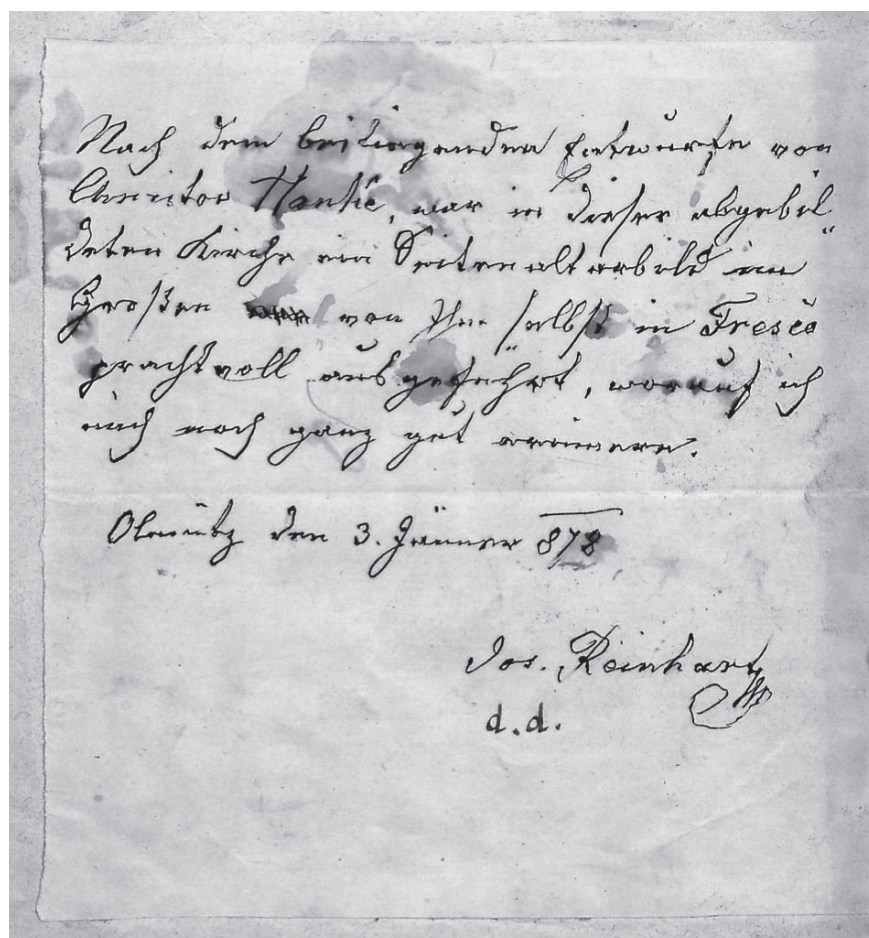 Nach dem beiliegenden Entwurfe von
war in dieser abgebil
deten Kirche ein Seitenaltarbild im
Großen von Ihm selbst in Fresco
prachtvoll ausgeführt, worauf ich
mich noch ganz gut erinnere.
Olmütz den 3. Jänner 878
Jos. Reinhart
d.d.